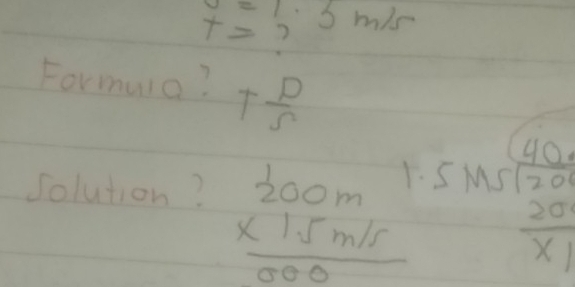 S = 1.5 m/s
T = ?
Formula? T D/S
Solution? 200m
x 15 m/s
000
1.5 MS 200
40.
20
x 1